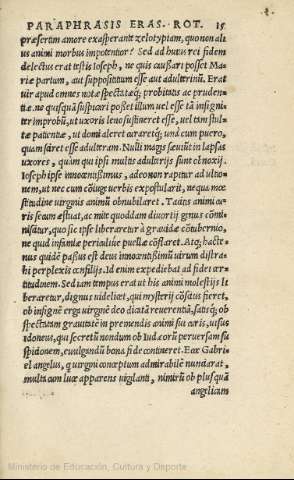 PARAPHRASIS ERAS. ROT. 15
præsertim amore exasperant zelotypiam, quo non ali
us animi morbus impotentior? Sed ad huius rei fidem
delectus erat testis Ioseph, ne quis caussari posset Ma-
riæ partum, aut suppositium esse aut adulterinũ. Erat
uir apud omnes notæ spectatæq; probitatis ac prudен-
tiæ. ne quisquã suspicari posset illum uel esse tã insigni-
ter improbũ, ut uxoris leno sustineret esse, uel tam stul-
tæ patientiæ, ut domi aleret curaretq; und cum puero,
quam sciret esse adulteram. Nulli magis sæuiũt in lapsas
uxores, quàm qui ipsi multis adulterijs sunt obnoxij.
Ioseph ipse innocentißimus, adeo non rapitur ad ultio-
nem, ut nec cum cõiuge uerbis expostularit, ne qua mœ-
stitudine uirginis animũ obnubilaret. Tacitus animi cu-
ris secum æstuat, ac mite quoddam diuortij genus conti-
nisatur, quo sic ipse liberaretur à grauidæ cõtubernio,
ne quid infamiæ periculiue puellæ cõflaret. Atq; hacte-
nus quidẽ passus est deus innocentißimũ uirum distra-
hi perplexis cõsilijs. Id enim expediebat ad fidei cer-
titudinem. Sed iam tempus erat ut his animi molestijs li
beraretur, dignus uidelicet, qui mysterij cõscius fieret,
ob insignẽ erga uirginẽ deo dicatã reuerentiã, satisq; ob
spectatam grauitatẽ in premendis animi sui curis, uisus
idoneus, qui secretũ nondum ob Iudæorũ peruersam su
spicionem, euulgandũ bona fide contineret. Ecce Gabri-
el angelus, q uirgini conceptum admirabilẽ nunciarat,
multa cum luce apparens uigilanti, nimirũ ob plusquã
angelicam
Ministerio de Educación, Cultura y Deporte